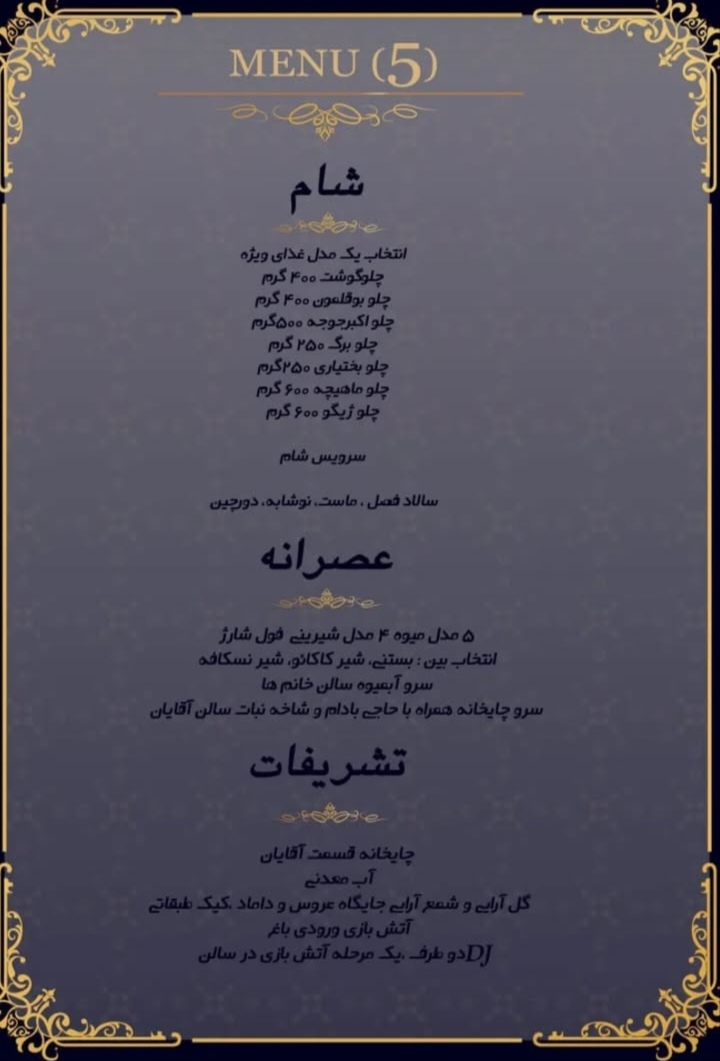 MENU (5)
شام
انتخاب یک مدل غذای ویژه
چلوگوشت ۴۰۰ گرم
چلو بوقلمون ۴۰۰ گرم
چلو اکبرجوجه ۵۰۰گرم
چلو برگ ۲۵۰ گرم
چلو بختیاری ۲۵۰گرم
چلو ماهیچه ۶۰۰ گرم
چلو ژیگو ۶۰۰ گرم
سرویس شام
سالاد فصل ، ماست، نوشابه، دورچین
عصرانه
۵ مدل میوه ۴ مدل شیرینی فول شارژ
انتخاب بین : بستنی، شیر کاکائو، شیر نسکافه
سرو آبمیوه سالن خانم ها
سرو چایخانه همراه با حاجی بادام و شاخه نبات سالن آقایان
تشریفات
چایخانه قسمت آقایان
آب معدنی
گل آرایی و شمع آرایی جایگاه عروس و داماد ،کیک طبقاتی
آتش بازی ورودی باغ
DJدو طرف ،یک مرحله آتش بازی در سالن